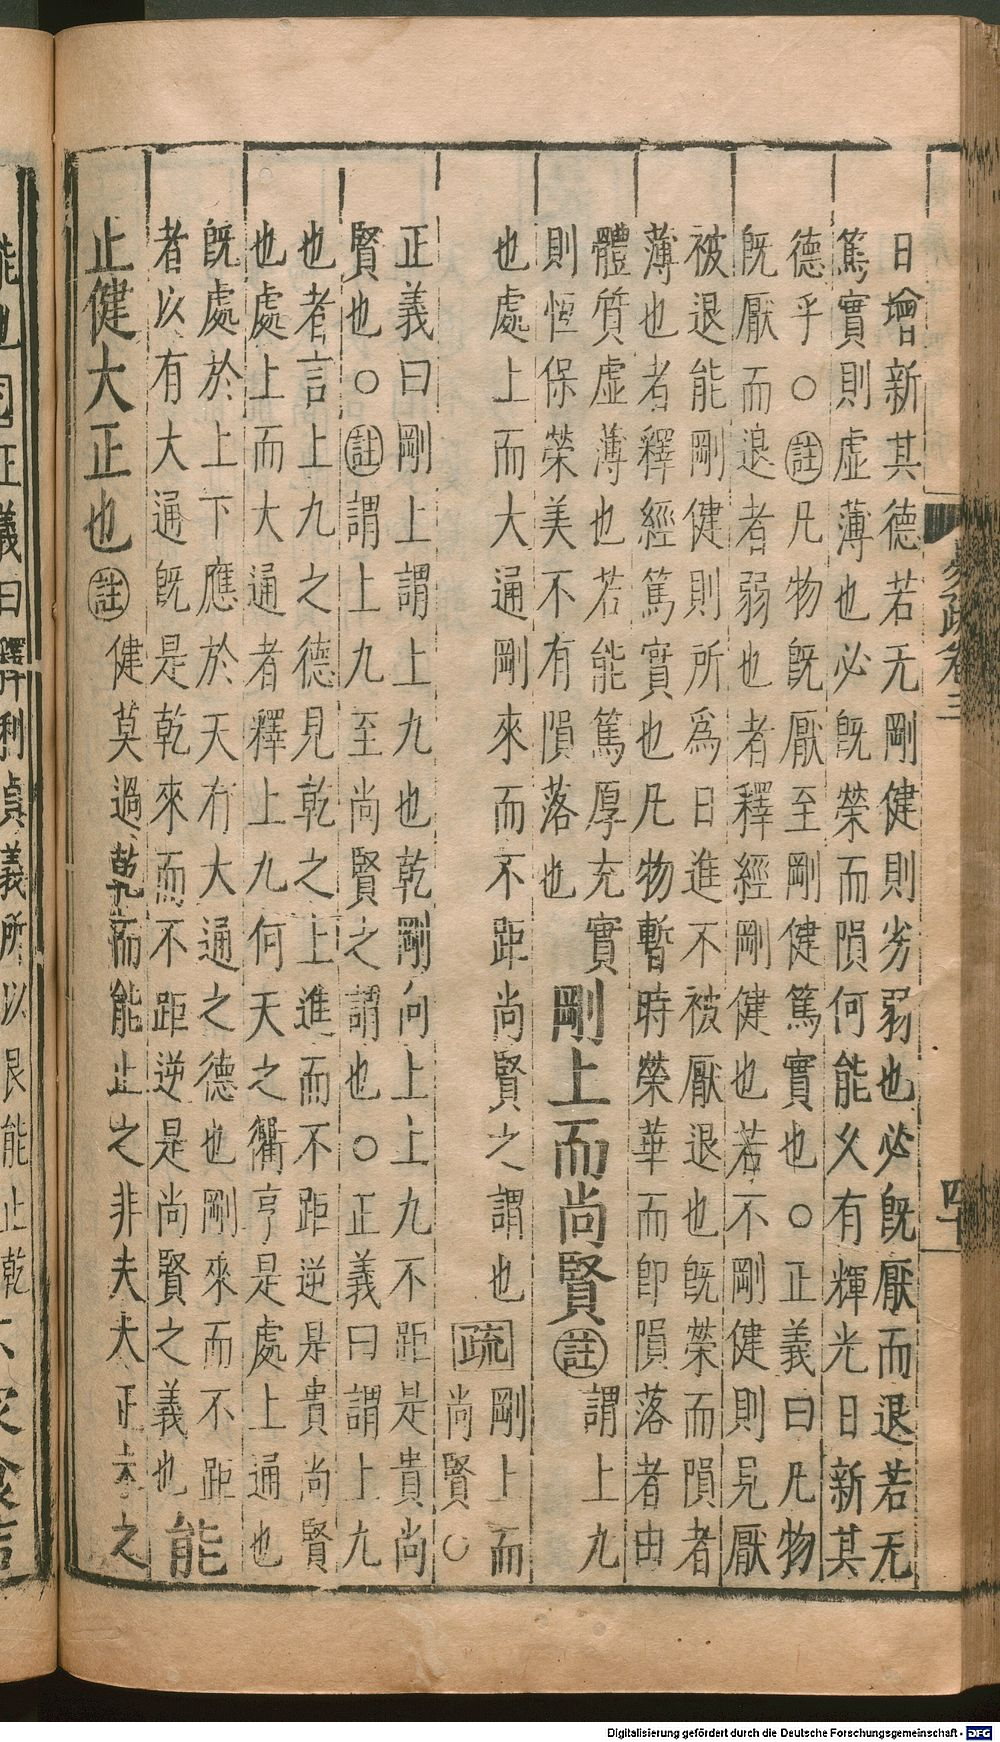 日增新其德若无剛健則劣弱也必旣厭而退若无
篤實則虛薄也必旣榮而隕何能乆有輝光日新其
德乎○註凡物旣厭至剛健篤實也○正義曰凡物
旣厭而退者弱也者釋經剛健也若不剛健則見厭
被退能剛健則所爲日進不被厭退也旣榮而隕者
薄也者釋經篤實也凡物暫時榮華而卽隕落者由
體質虛薄也若能篤厚充實
則恆保榮美不有隕落也
剛上而尚賢註
謂上九
也處上而大通剛來而不距尚賢之謂也
疏
剛上而
尚賢○
正義曰剛上謂上九也乾剛向上上九不距是貴尚
賢也○註謂上九至尚賢之謂也○正義曰謂上九
也者言上九之德見乾之上進而不距逆是貴尚賢
也處上而大通者釋上九何天之衢亨是處上通也
旣處於上下應於天有大通之德也剛來而不距
者以有大通旣是乾來而不距逆是尚賢之義也
能
止健大正也註
健莫過乾而能止之非夫大正未之
易疏卷三
四十
能也
疏正義曰釋利貞義所以艮能止乾
不家食吉
Digitalisierung gefördert durch die Deutsche Forschungsgemeinschaft - DFG